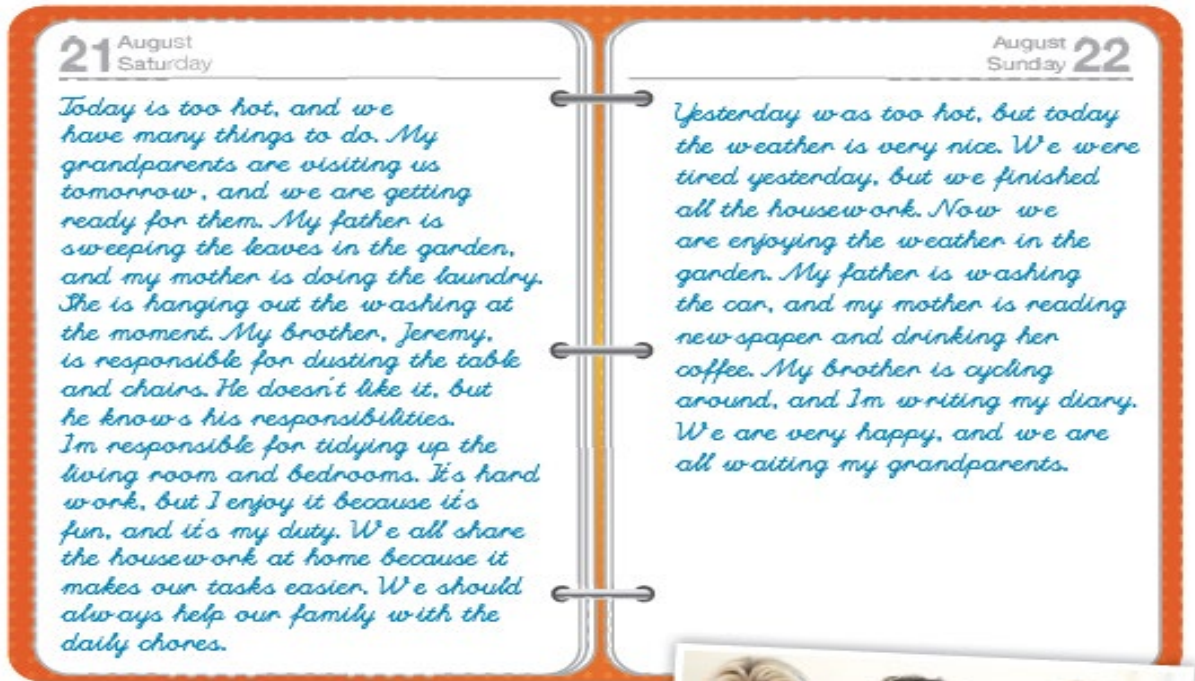 21 August
Saturday
Today is too hot, and we
have many things to do. My
grandparents are visiting us
tomorrow, and we are getting
ready for them. My father is
sweeping the leaves in the garden,
and my mother is doing the laundry.
She is hanging out the washing at
the moment. My brother, Jeremy,
is responsible for dusting the table
and chairs. He doesn't like it, but
he knows his responsibilities.
Im responsible for tidying up the
living room and bedrooms. It's hard
work, but I enjoy it because it's
fun, and it's my duty. We all share
the housework at home because it
makes our tasks easier. We should
always help our family with the
daily chores.
August 22
Sunday
Yesterday was too hot, but today
the weather is very nice. We were
tired yesterday, but we finished
all the housework. Now we
are enjoying the weather in the
garden. My father is washing
the car, and my mother is reading
newspaper and drinking her
coffee. My brother is cycling
around, and Im writing my diary.
We are very happy, and we are
all waiting my grandparents.